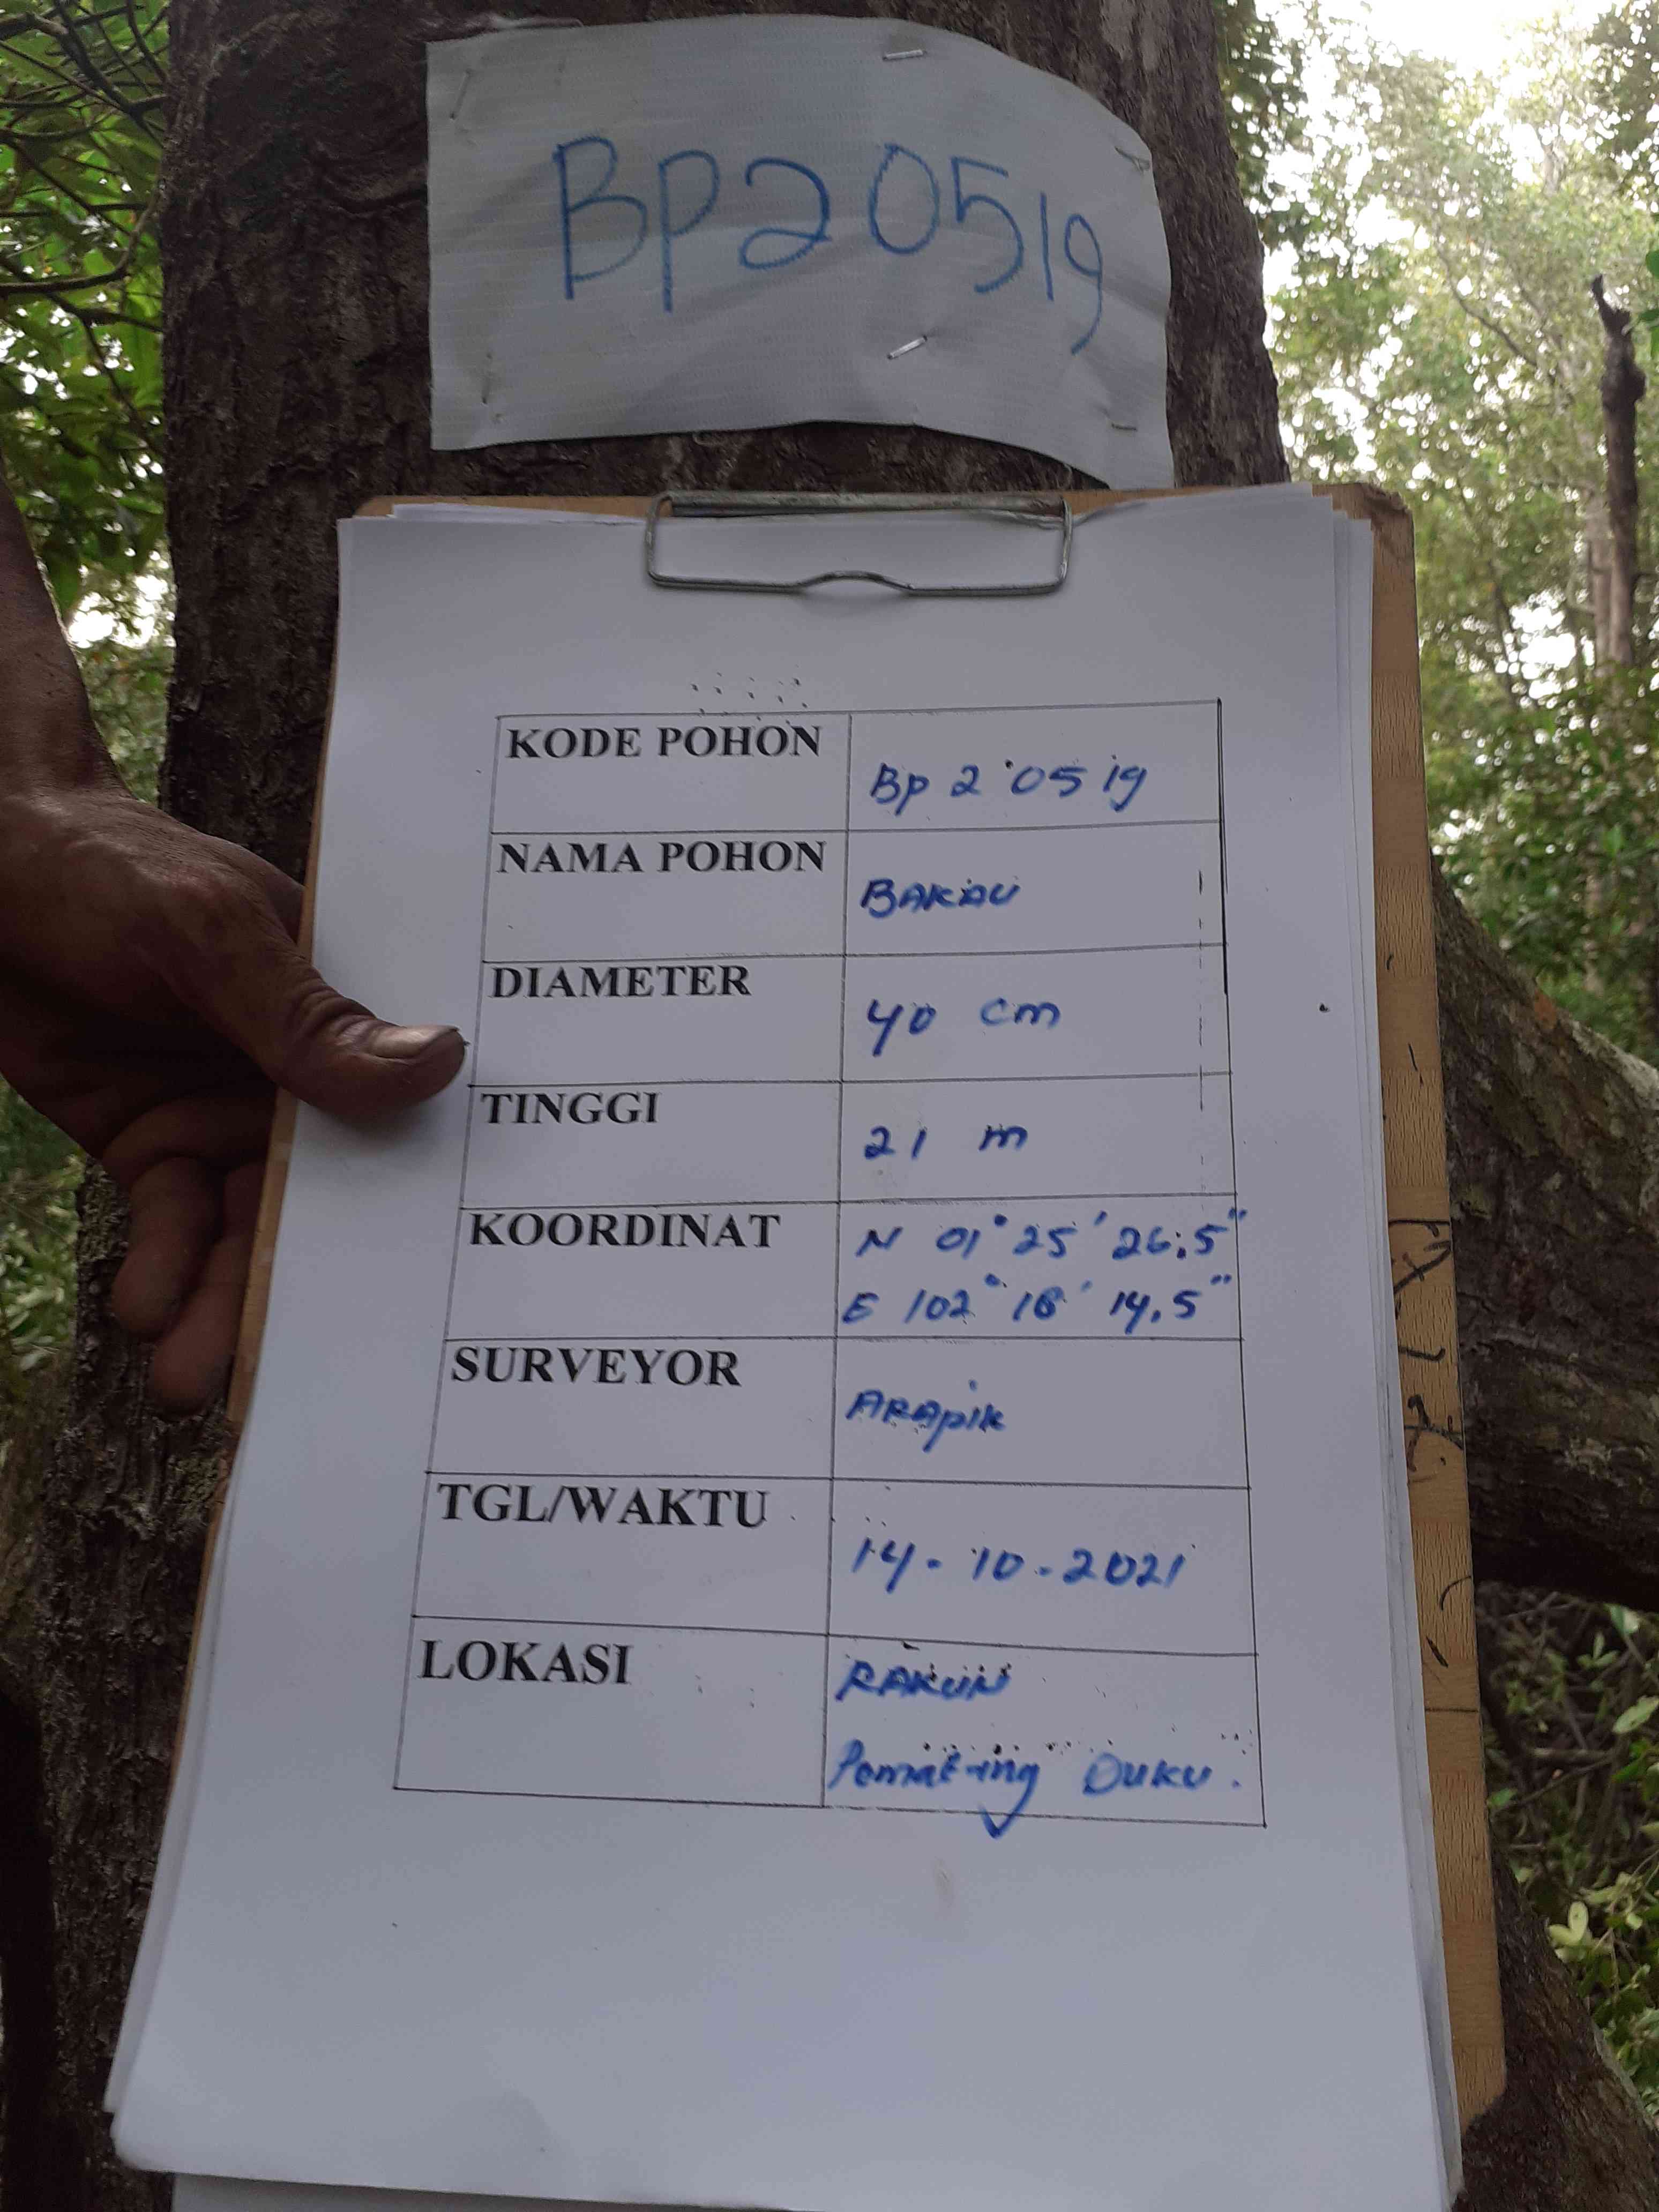 BP2 0519
KODE POHON
Bp 2 0519
NAMA POHON
BAKAU
DIAMETER
40 cm
TINGGI
21 m
KOORDINAT
N 01° 25' 26.5"
E 102° 18' 14.5"
SURVEYOR
ARApik
TGL/WAKTU
14 - 10 - 2021
LOKASI
RAKUN
DUKU.